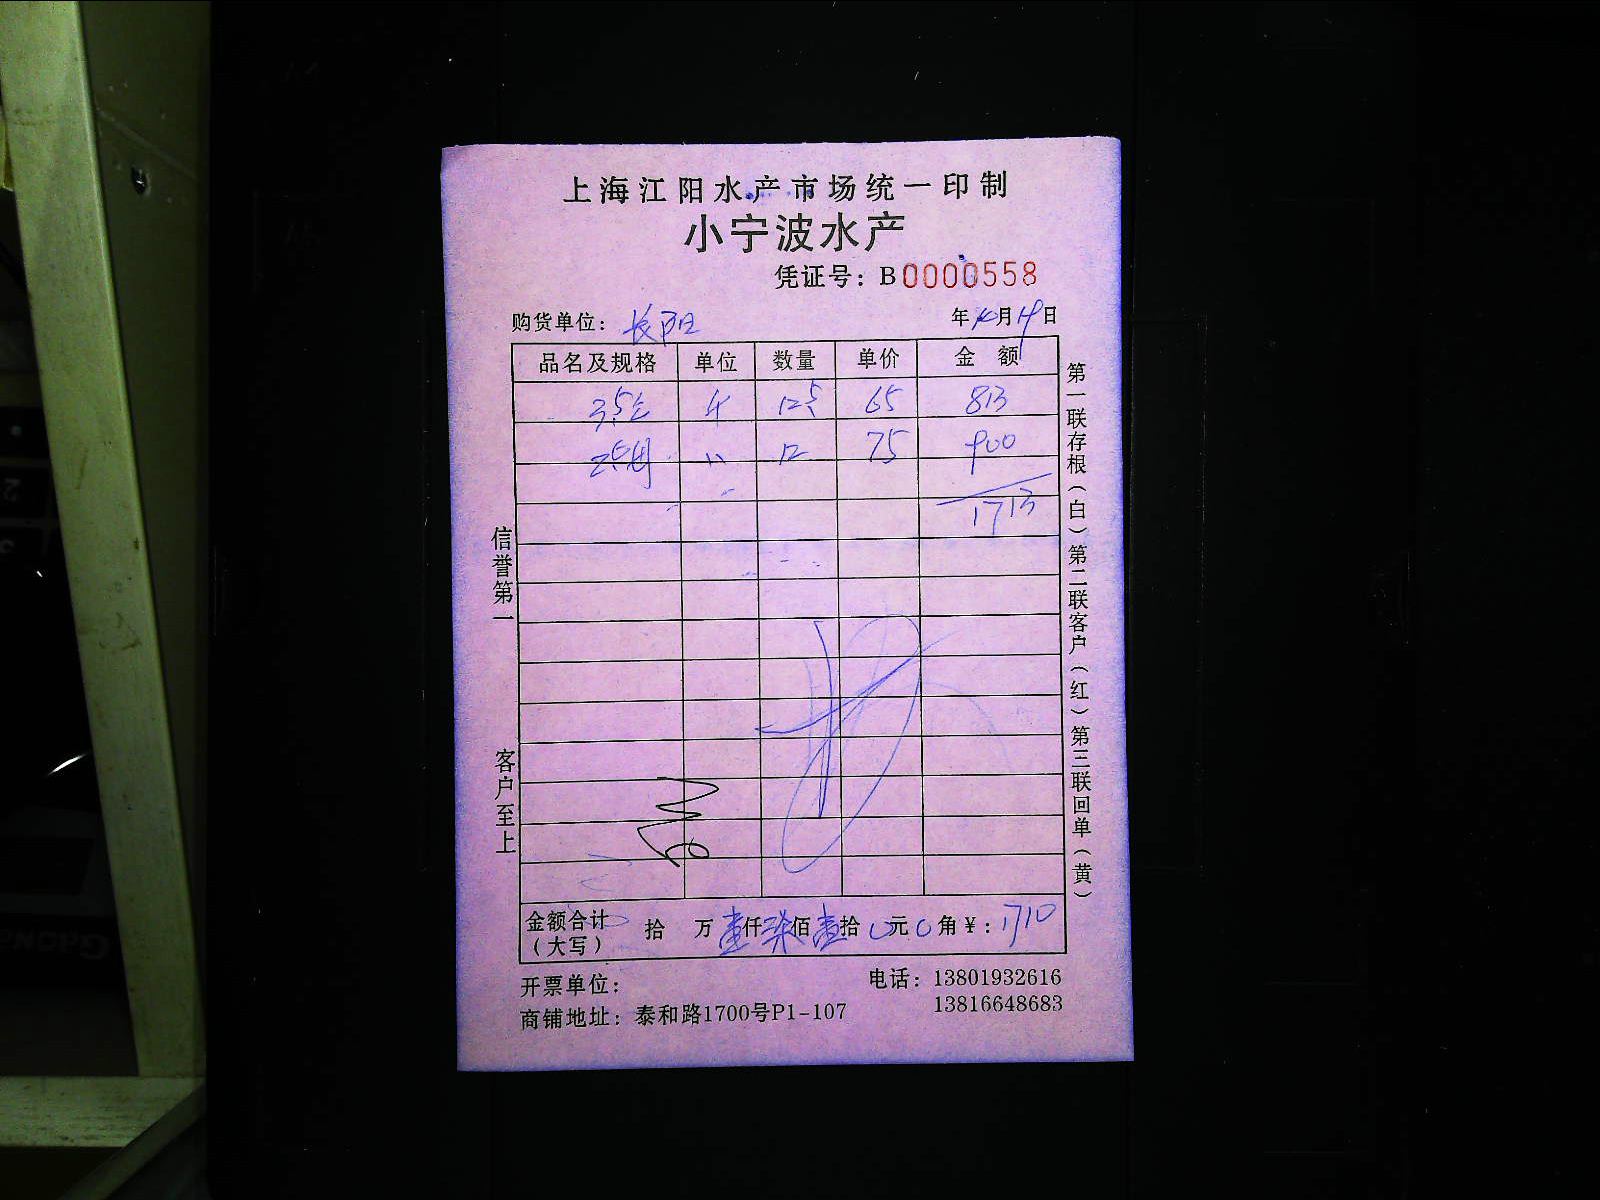 上海江阳水产市场统一印制
小宁波水产
凭证号：B0000558
购货单位：长阳 年 月19日
品名及规格 单位 数量 单价 金额
12.5 65 813
12 75 900
1713
信誉第一 客户至上
第一联存根（白）第二联客户（红）第三联回单（黄）
金额合计（大写） 拾 万壹仟柒佰壹拾0元0角¥：1710
开票单位： 电话：13801932616
13816648683
商铺地址：泰和路1700号P1-107